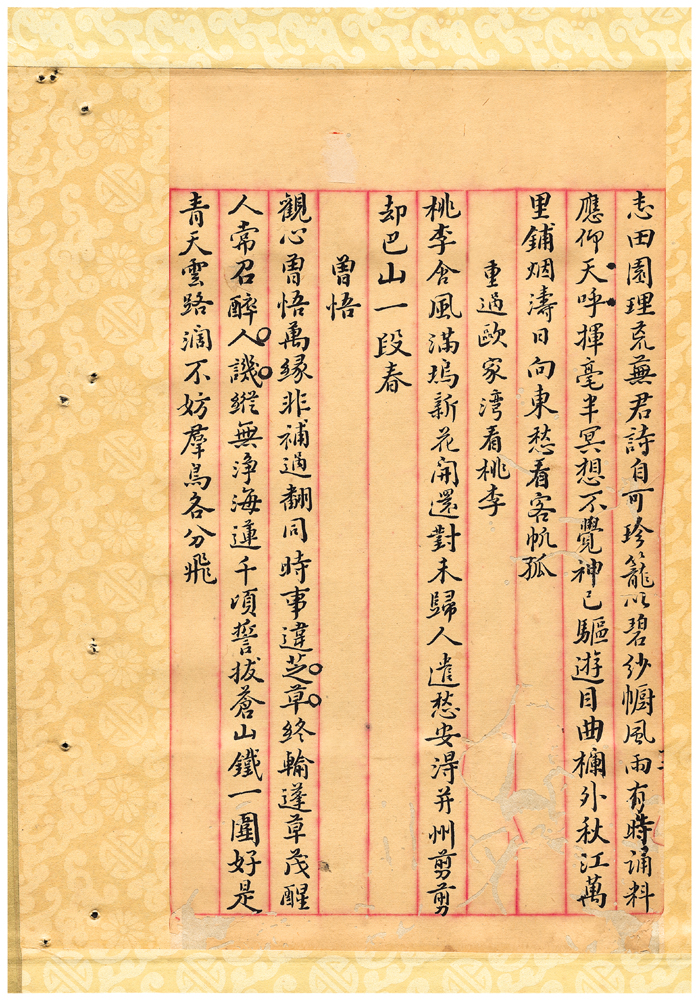 志田園理荒蕪君詩自可珍籠以碧紗幮風雨有時誦料
應仰天呼揮毫半冥想不覺神已驅遊目曲欄外秋江萬
里鋪烟濤日向東愁看客帆孤
重過歐家灣看桃李
桃李含風滿塢新花開還對未歸人遣愁安得并州剪剪
却巴山一段春
曽悟
觀心曽悟萬緣非補過翻同時事違芝草終輸蓬草茂醒
人常召醉人譏縱無淨海蓮千頃誓拔蒼山鐵一圍好是
青天雲路濶不妨羣鳥各分飛